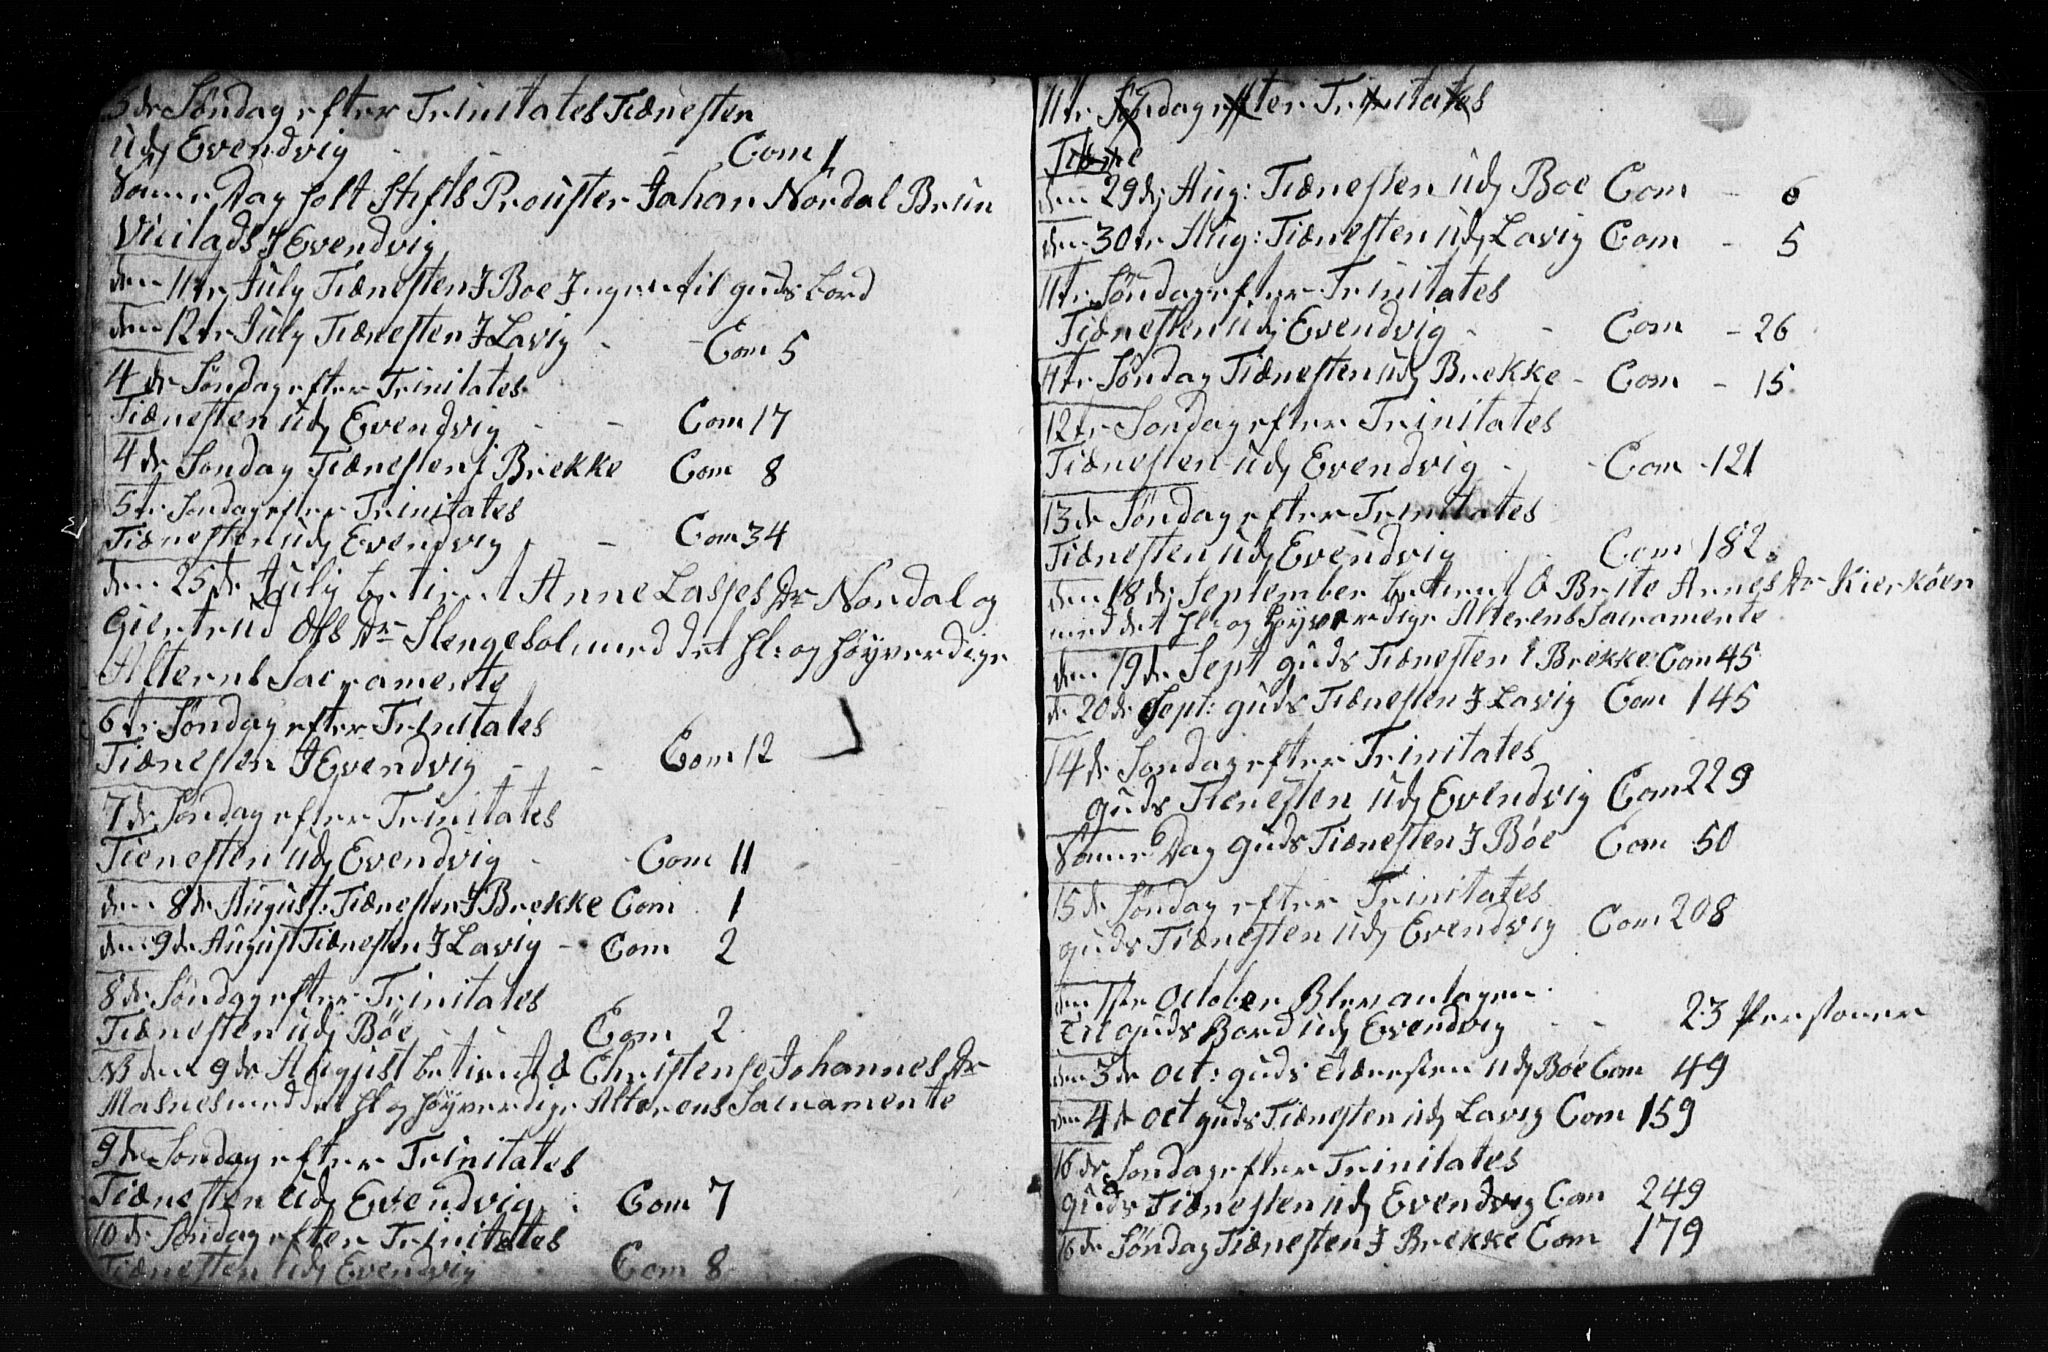 3de Søndag efter Trinitates Tiænesten
udj Evendvig - - - Com 1
Same Dag holt Stifts Prouster Johan Nordal Brun
Visitads J Evendvig
den 11te July Tiænesten J Boe Ingen til guds Bord
den 12te July Tiænesten J Lavig - Com 5
4de Søndag efter Trinitates
Tiænesten udj Evendvig - - Com 17
4de Søndag Tiænesten J Brekke Com 8
5te Søndag efter Trinitates
Tiænesten udj Evendvig - - Com 34
den 25de July betient Anne Lasses Dr Nordal og
Giertrud Ols Dr Slengesol med det hl: og höyverdige
Alterns Sacramente
6te Søndag efter Trinitates
Tiænesten J Evendvig - - Com 12
7de Søndag efter Trinitates
Tienesten udj Evendvig - - Com 11
den 8de August: Tiænesten J Brekke Com 1
den 9de August Tiænesten J Lavig - Com 2
8de Søndag efter Trinitates
Tiænesten udj Böe Com 2
NB den 9de August betient Christense Johannes Dr
Masnes med det hl og höyverdige Alterens Sacramente
9de Søndag efter Trinitates
Tiænesten udj Evendvig . Com 7
10de Søndag efter Trinitates
Tiænesten udj Evendvig Com 8
11te Søndag efter Trinitates
Tiæne
den 29de Aug: Tiænesten udj Boe Com - 6
den 30te Aug: Tiænesten udj Lavig Com - 5
11te Søndag efter Trinitates
Tiænesten udj Evendvig - - Com - 26
11te Søndag Tiænesten udj Brekke - Com - 15
12te Søndag efter Trinitates
Tiænesten udj Evendvig - - Com - 121
13de Søndag efter Trinitates
Tiænesten udj Evendvig Com 182.
den 18de September betient Brite Arnes Dr Kierköen
med det hl: og höyverdige Alterens Sacramente
den 19de Sept guds Tiænesten i Brekke: Com 45
de 20de Sept: guds Tiænesten J Lavig Com 145
14de Søndag efter Trinitates
guds Tienesten udj Evendvig Com 229
Same Dag guds Tiænesten J Böe Com 50
15de Søndag efter Trinitates
guds Tiænesten udj Evendvig Com 208
den 1ste October Blev antagen
til guds Bord udj Evendvig - - 23 Personer
den 3de Oct: guds tiænesten udj Böe Com 49
den 4de Oct guds Tiænesten udj Lavig Com 159
16de Søndag efter Trinitates
guds Tiænesten udj Evendvig Com 249
16de Søndag Tiænesten J Brekke Com 179